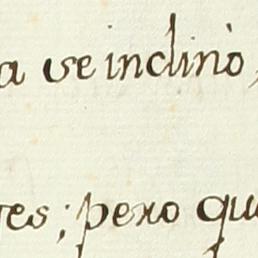 a se inclinò,
es; pero qu